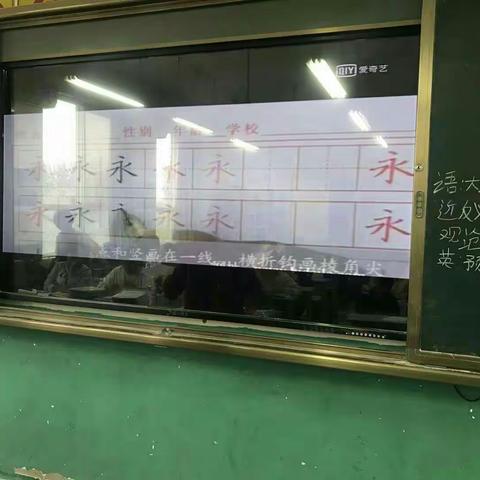 爱奇艺
性别 年龄 学校
永 永 永 永 永 永
永 永 永 永 永
点和竖画在一线 横折钩画棱角尖
语:大
近义
观览
英 预